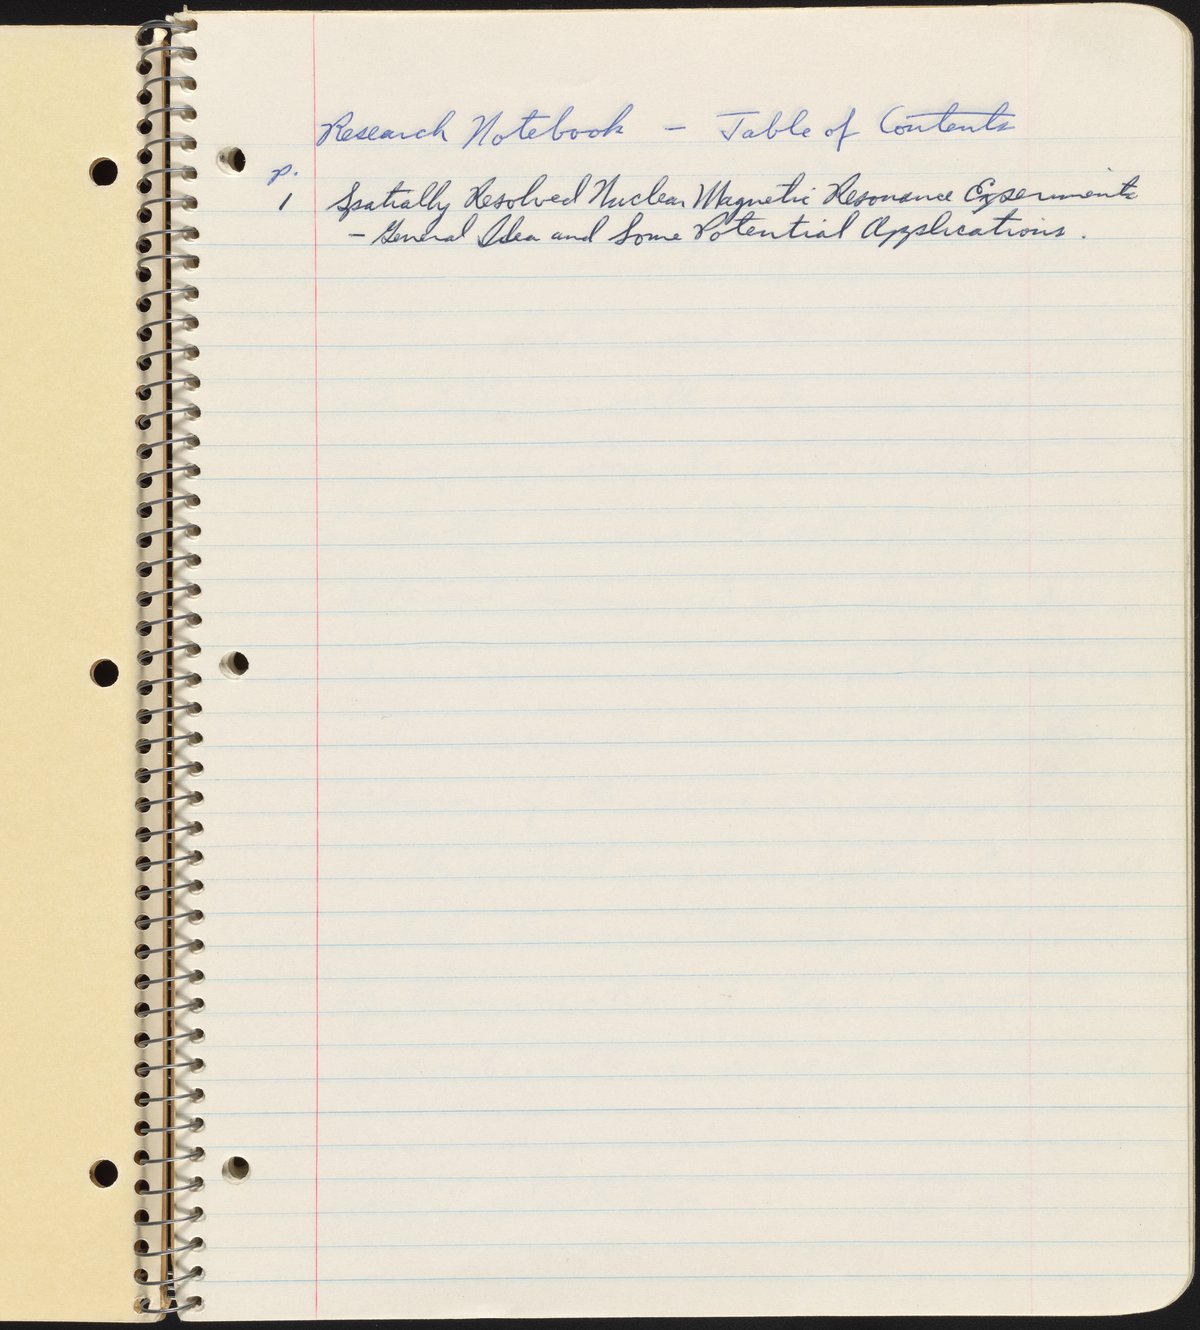 Research Notebook — Table of Contents
p.
1 Spatially Resolved Nuclear Magnetic Resonance Experiments
— General Idea and Some Potential Applications.